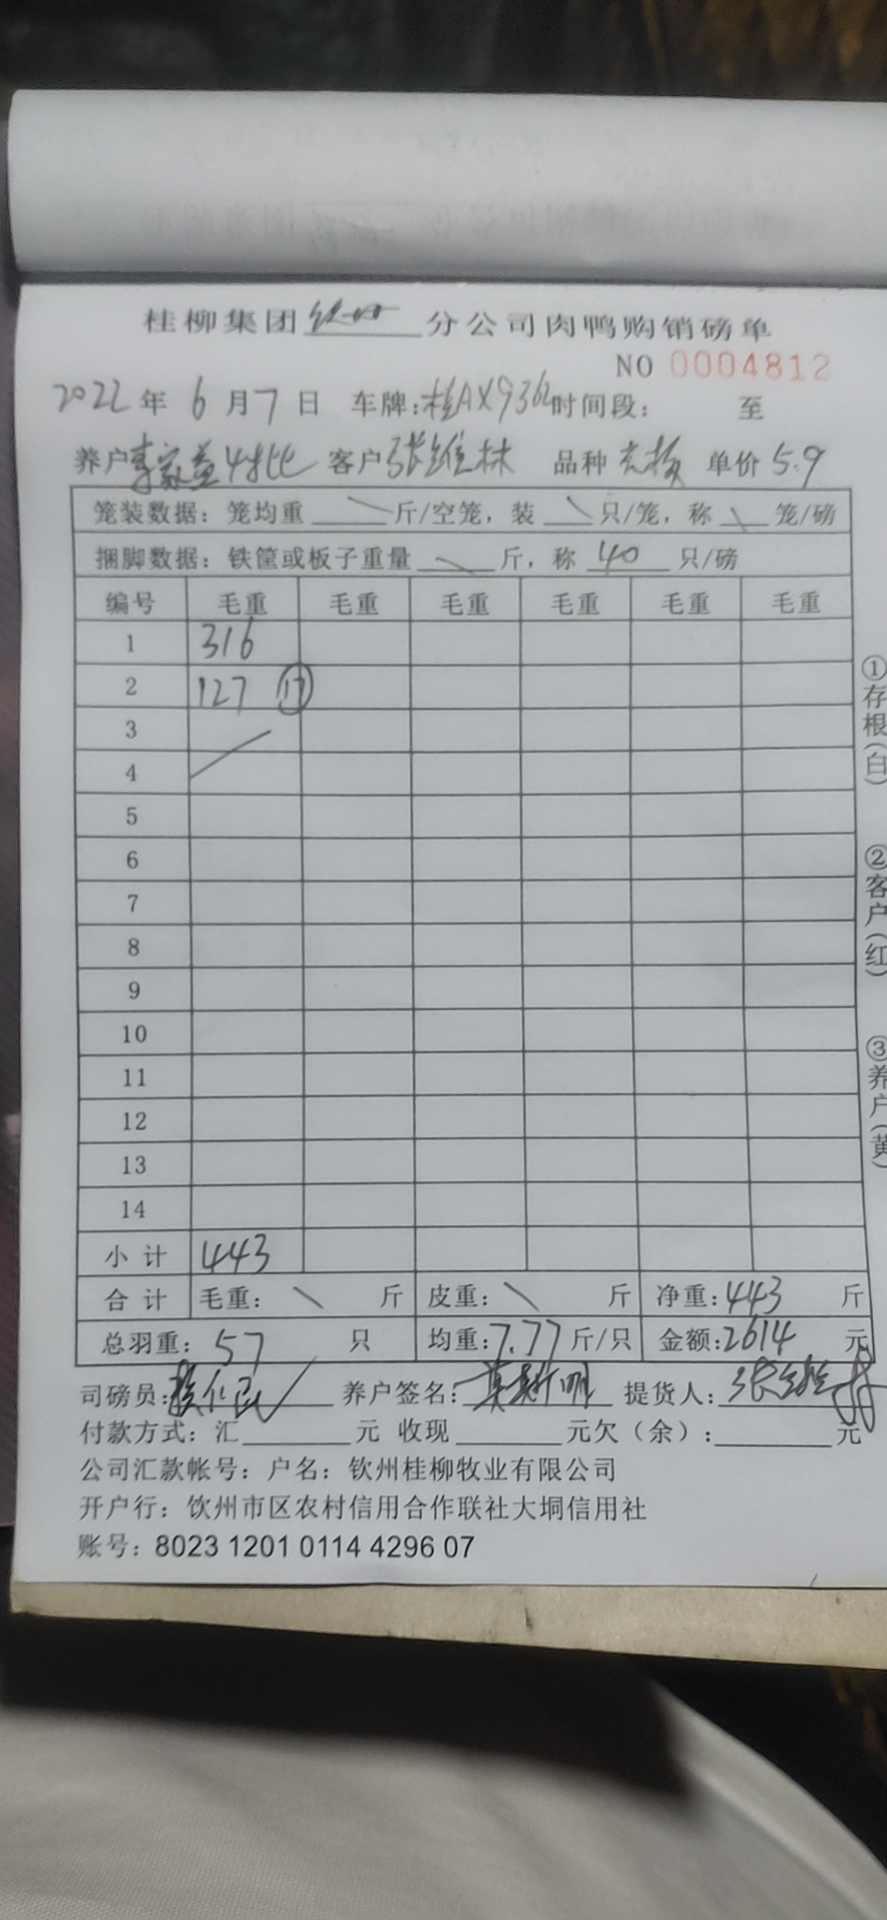 桂柳集团钦州分公司肉鸭购销磅单
NO 0004812
2022年6月7日 车牌:桂AX9362时间段: 至
养户李家益4批 客户张维林 品种 单价5.9
笼装数据:笼均重 \ 斤/空笼,装 \ 只/笼,称 \ 笼/磅
捆脚数据:铁筐或板子重量 \ 斤,称 40 只/磅
编号 毛重 毛重 毛重 毛重 毛重 毛重
1 316
2 127 ⑰
3
4
5
6
7
8
9
10
11
12
13
14
小计 443
合计 毛重: \ 斤 皮重: \ 斤 净重:443 斤
总羽重: 57 只 均重:7.77斤/只 金额:2614 元
司磅员: 养户签名: 提货人:
付款方式:汇 元 收现 元欠(余): 元
公司汇款帐号:户名:钦州桂柳牧业有限公司
开户行:饮州市区农村信用合作联社大垌信用社
账号:8023 1201 0114 4296 07
①存根(白)
②客户(红)
③养户(黄)